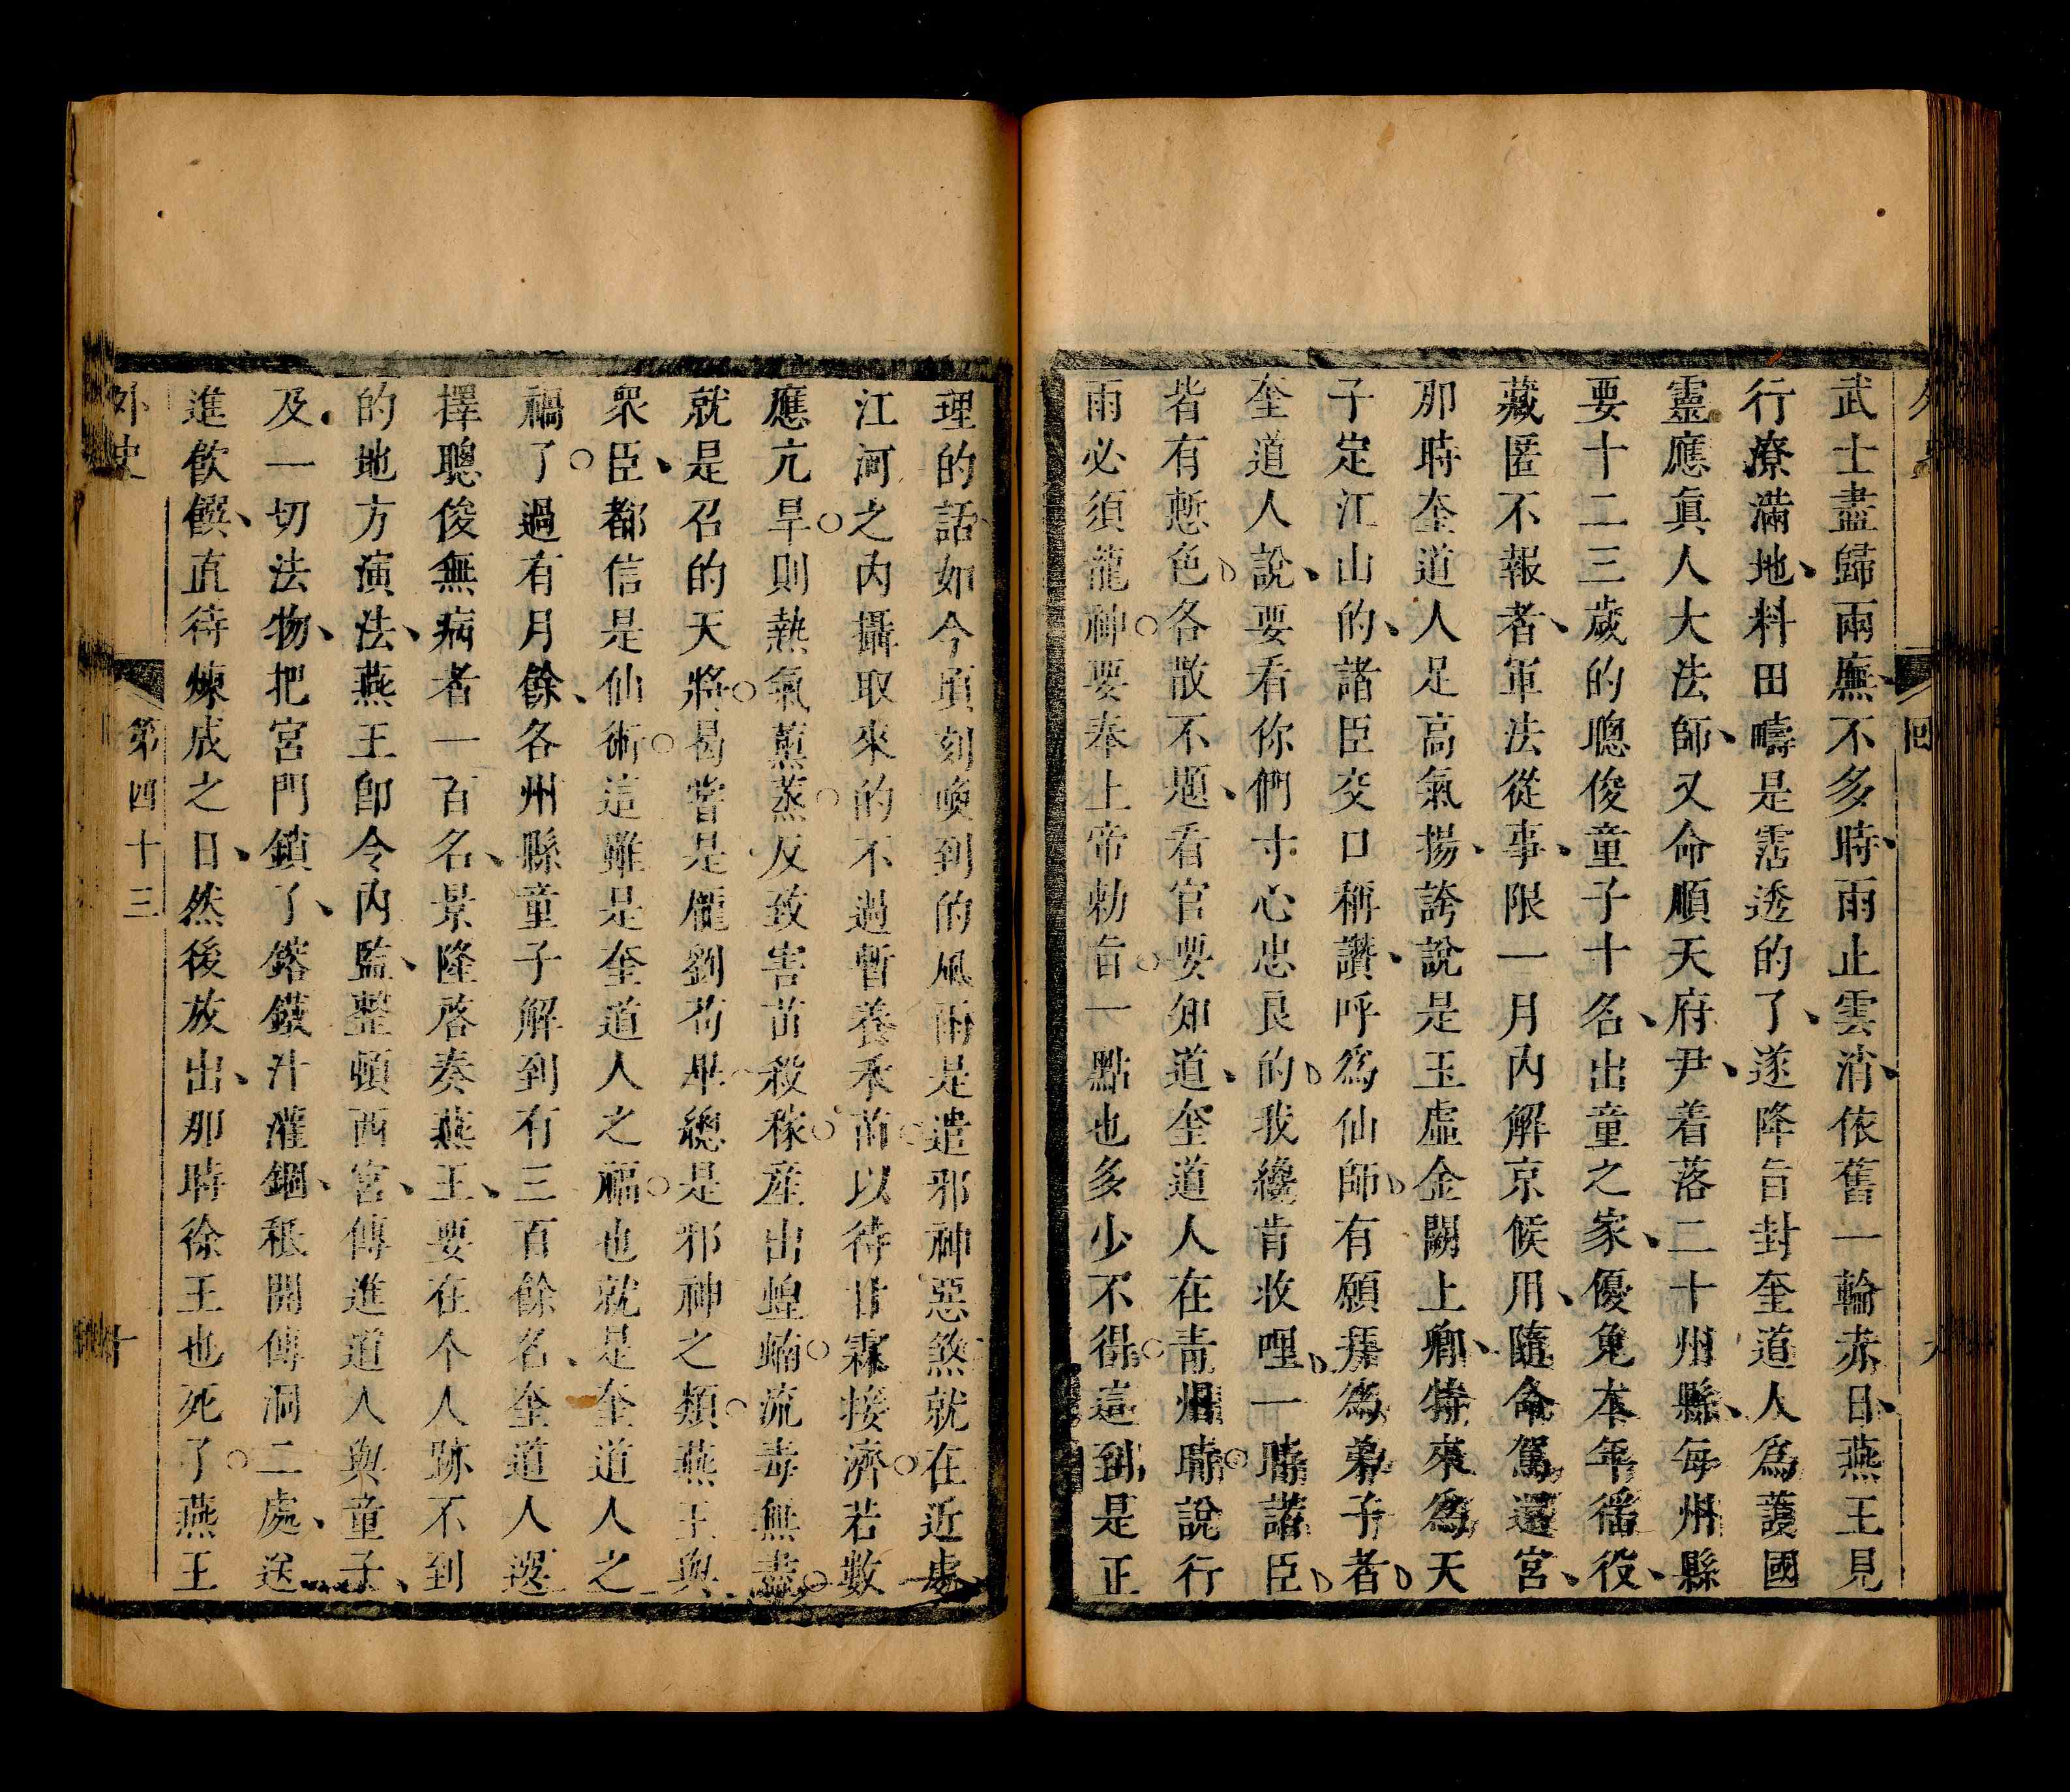 武士盡歸兩廡不多時雨止雲消依舊一輪赤日燕王見
行潦滿地料田疇是霑透的了遂降旨封奎道人為護國
靈應真人大法師又命順天府尹着落二十州縣每州縣
要十二三歲的聰俊童子十名出童之家優免本年徭役
藏匿不報者軍法從事限一月內解京候用隨命駕還宮
那時奎道人足高氣揚誇說是玉虛金闕上卿特來為天
子定江山的諸臣交口稱讚呼為仙師有願拜為弟子者
奎道人說要看你們寸心忠良的我纔肯收哩一時諸臣
皆有慙色各散不題看官要知道奎道人在青州時說行
雨必須龍神要奉上帝勅旨一點也多少不得這到是正
理的話如今頃刻喚到的風雨是遣邪神惡煞就在近處
江河之內攝取來的不過暫養禾苗以待甘霖接濟若數
應亢旱則熱氣薰蒸反致害苗殺稼產出蝗蝻流毒無盡
就是召的天將曷嘗是龐劉苟畢總是邪神之類燕王與
衆臣都信是仙術這雖是奎道人之福也就是奎道人之
禍了過有月餘各州縣童子解到有三百餘名奎道人選
擇聰俊無病者一百名景隆啓奏燕王要在个人跡不到
的地方演法燕王卽令內監整頓西宮傳進道人與童子
及一切法物把宮門鎖了鎔鐵汁灌錮秪開傳洞二處送
進飲饌直待煉成之日然後放出那時徐王也死了燕王
外史
第四十三
十